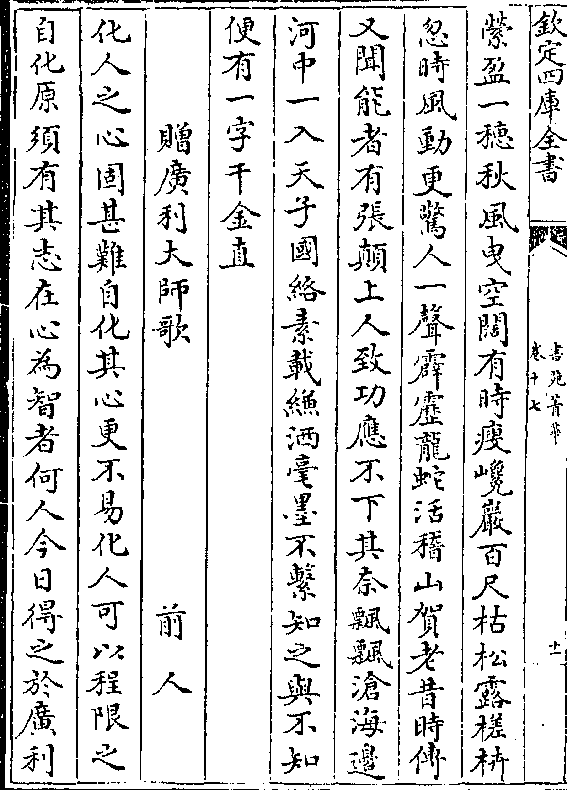 欽定四庫全書
書苑菁華
卷十七
十一
縈盈一穗秋風曳空闊有時瘦巉巖百尺枯松露槎枿
忽時風動更驚人一聲霹靂龍蛇活稽山賀老昔時傳
又聞能者有張顛上人致功應不下其奈飄飄滄海邊
河中一入天子國絡素載縑洒毫墨不繫知之與不知
便有一字千金直
贈廣利大師歌 前人
化人之心固甚難自化其心更不易化人可以程限之
自化原須有其志在心為智者何人今日得之於廣利